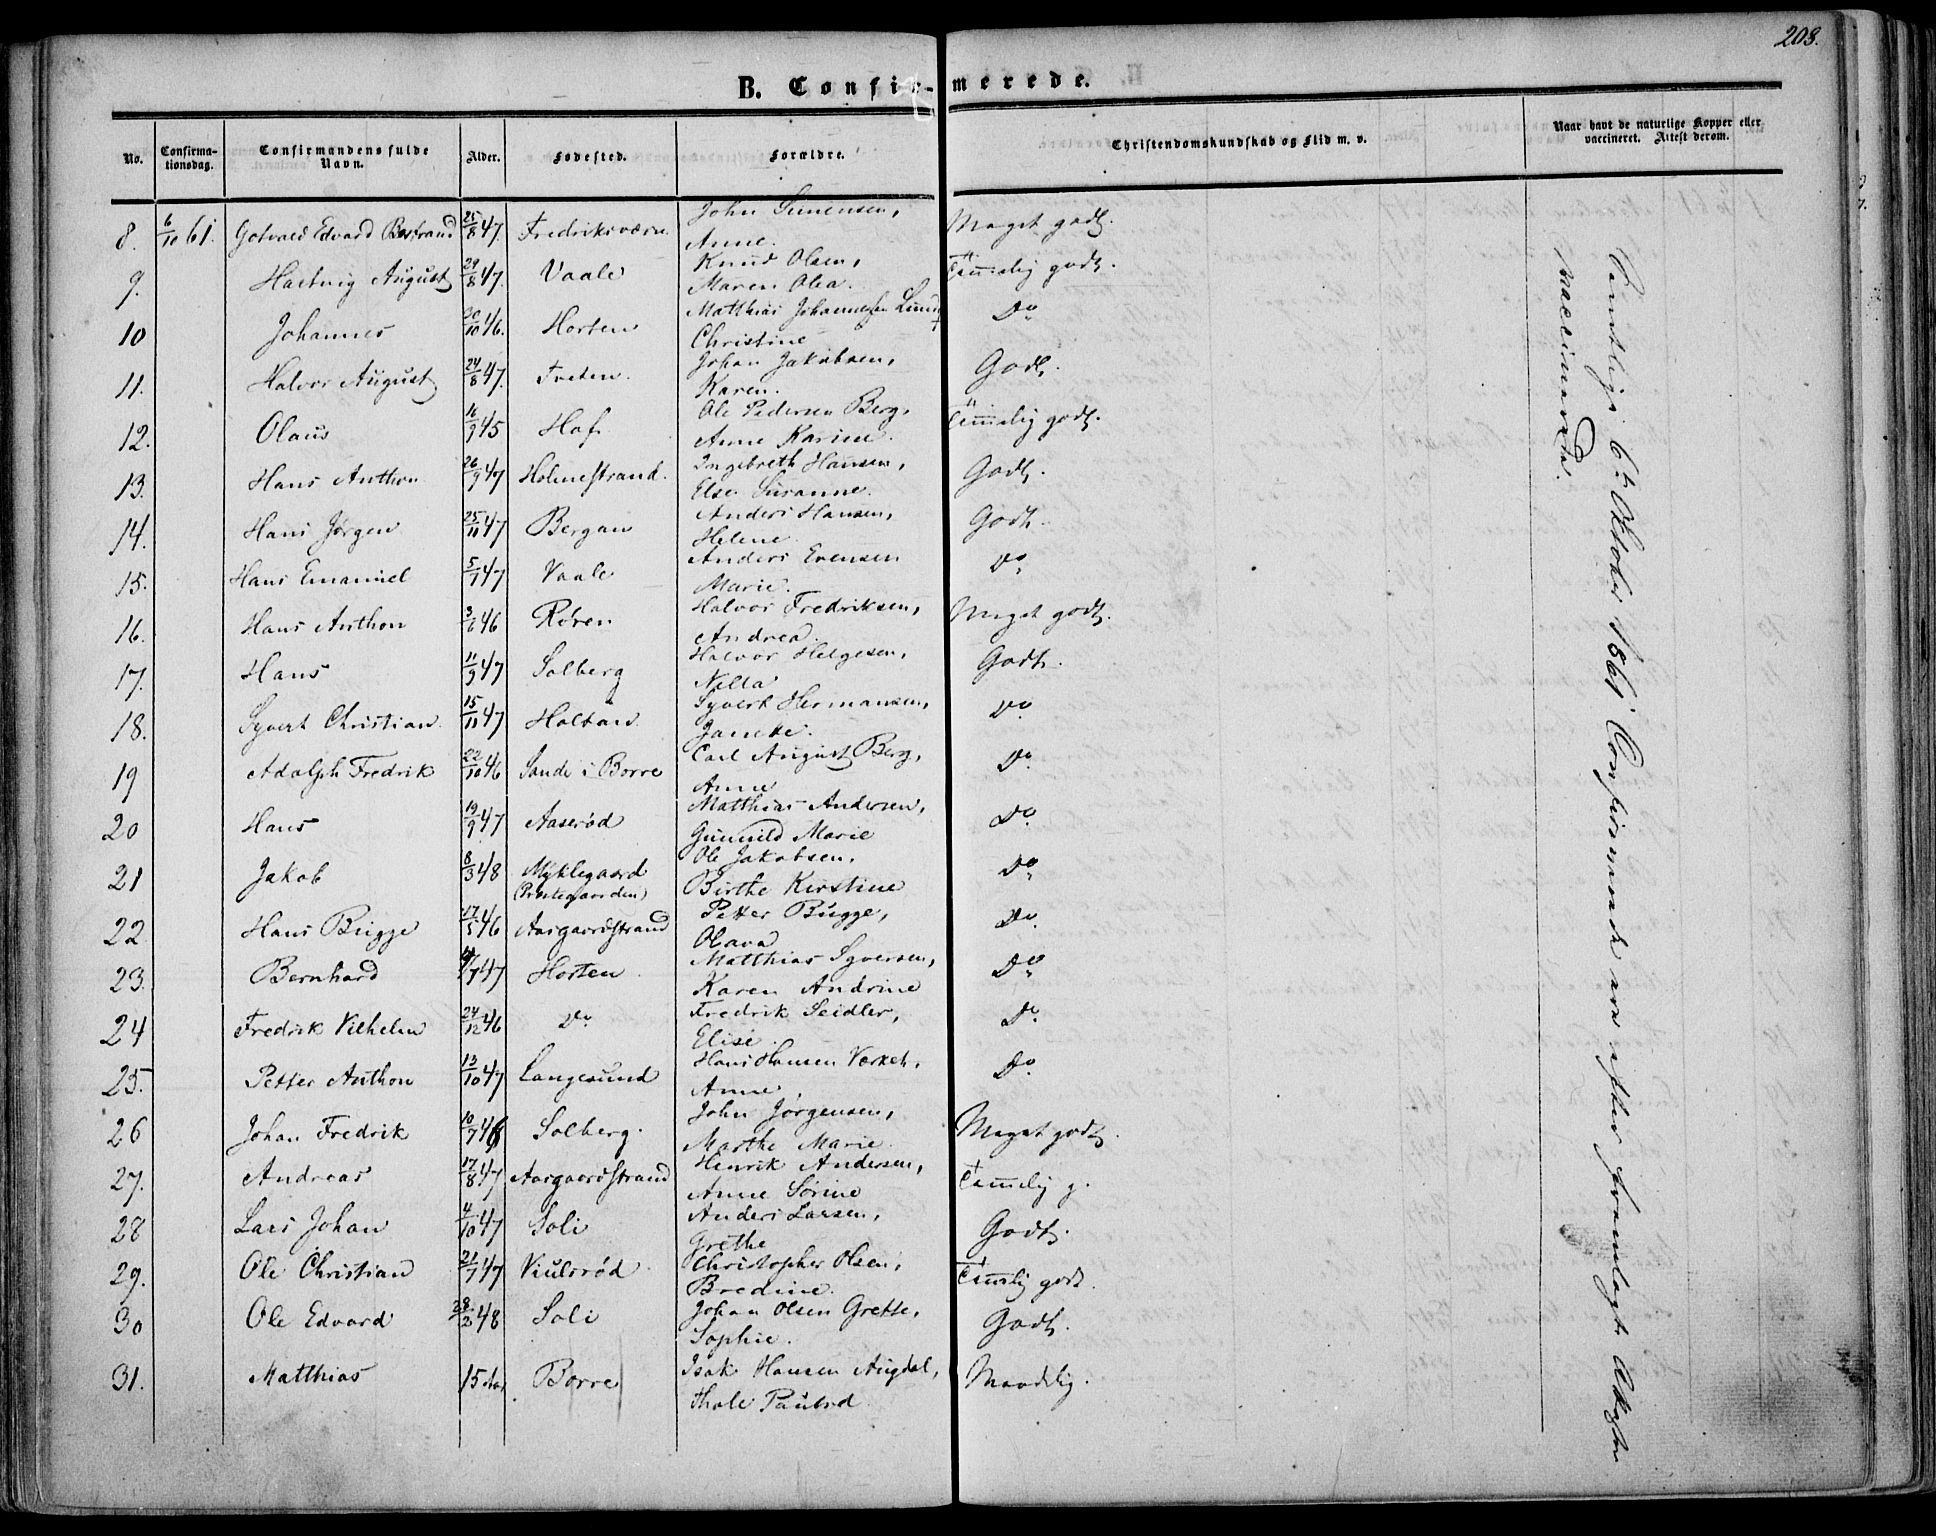 208.
B. Confir- merede.
No. Confirma-tionsdag. Confirmandens fulde Navn. Alder. Fødested. Forældre. Christendomskundskab og Flid m. v. Naar havt de naturlige Kopper eller vaccineret. Attest derom.
8. 6/10 61. Gotvald Edvard 25/8 47. Fredriksværn John Simensen, Anne. Meget godt.
9. Hartvig August 29/8 47. Vaale Knud Olsen, Maren Olea. Temmelig godt.
10 Johannes 20/10 46. Horten Matthias Johannesen Lund, Christine Do
11. Halvor August 24/8 47. Tveten. Johan Jakobsen, Karen. Godt.
12. Olaus 16/9 45 Hof. Ole Pedersen Berg, Anne Karine. Temmelig godt.
13. Hans Anthon 26/9 47 Holmestrand. Ingebreth Hansen, Else Susanne. Godt.
14. Hans Jørgen 25/11 47 Bergan Anders Hansen, Helene. Godt.
15. Hans Emanuel 5/7 47 Vaale Anders Evensen Marie. Do
16. Hans Anthon 3/6 46 Røren Halvor Fredriksen, Andrea. Meget godt.
17. Hans 11/9 47 Solberg Halvor Helgesen, Nella Godt.
18. Syvert Christian. 15/11 47 Holtan. Syvert Hermansen, Janeke. Do
19 Adolph Fredrik 22/10 46 Sande i Borre Carl August Berg, Anne Do
20 Hans 19/9 47 Aaserød Matthias Andersen, Gunnild Marie Do
21 Jakob 8/3 48 Myklegaard (Prestegaarden) Ole Jakobsen, Birthe Kirstine Do
22 Hans Bugge 17/5 46 Aasgaardstrand Petter Bugge, Olava Do
23. Bernhard /7 47 Horten Matthias Syversen, Karen Andrine Do
24 Fredrik Vilhelm 24/12 46 Do Fredrik Seidler, Elise. Do
25. Petter Anthon 13/10 47 Langesund Hans Hansen Værket, Anne, Do
26 Johan Fredrik 10/7 46 Solberg. John Jørgensen, Marthe Marie. Meget godt.
27. Andreas 17/8 47 Aasgaardstrand Henrik Andersen, Anne Sørine Temmelig g.
28 Lars Johan 4/10 47 Soli Anders Larsen, Grethe Godt.
29. Ole Christian 21/7 47 Viulsrød Christopher Olsen, Bredine. Temmelig godt.
30 Ole Edvard 28/2 48 Soli Johan Olsen Grette, Sophie. Godt.
31. Matthias 15 Borre Isak Hansen Augdal, Thale Paulsd Maadelig.
Samtlige 6te Oktober 1861 Confirmerede ere efter fremlagte Attester
vaccinerede.